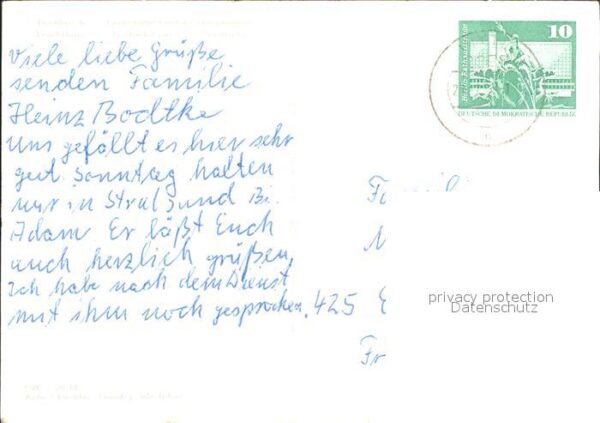 Viele liebe Grüße
senden Familie
Heinz Bodtke
Uns gefällt es hier sehr
gut. Sonntag halten
wir in Stralsund Bi.
Adam Er läßt Euch
auch herzlich grüßen,
Ich habe nach dem Dienst
mit ihm noch gesprochen.
425
Fr
10
Berlin, Rathausstraße
DEUTSCHE DEMOKRATISCHE REPUBLIK
privacy protection
Datenschutz